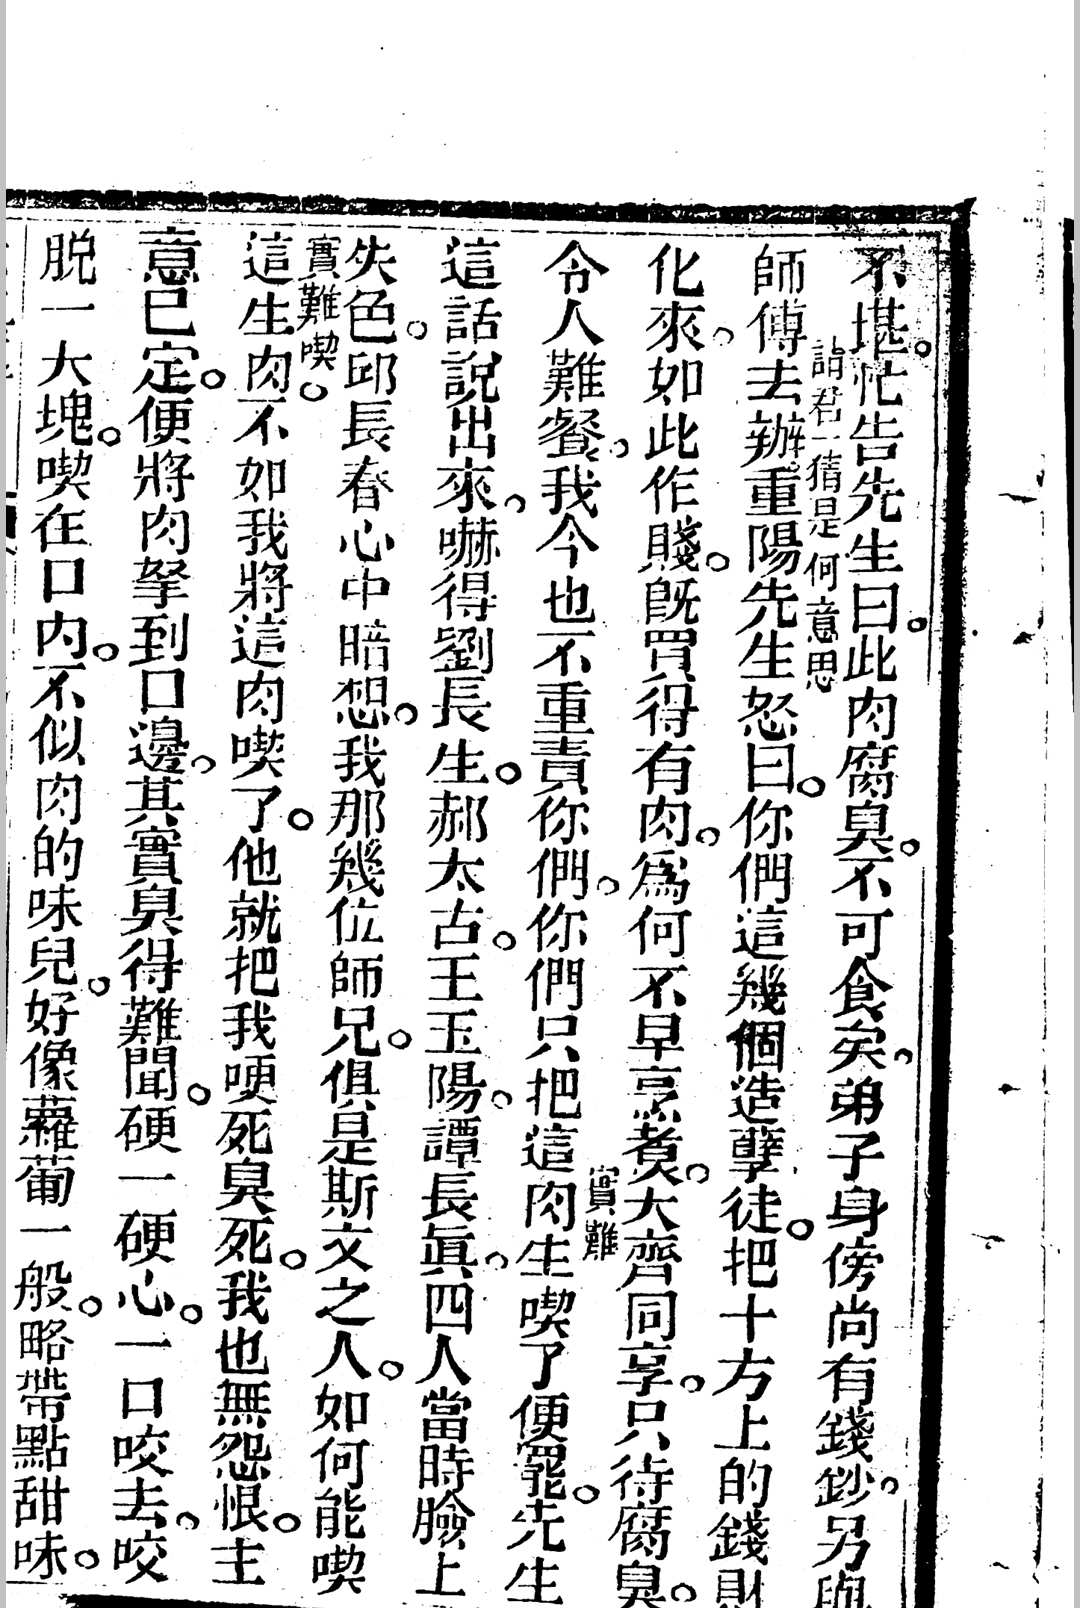 不堪。忙告先生曰。此肉腐臭。不可食矣。弟子身傍尚有錢鈔。另與
請君一猜是何意思
師傅去辦。重陽先生怒曰。你們這幾個造孽徒。把十方上的錢財
化來。如此作賤。既買得有肉。爲何不早烹煮。大齊同享。只待腐臭。
實難
令人難餐。我今也不重責你們。你們只把這肉生喫了便罷。先生
這話說出來。嚇得劉長生。郝太古。王玉陽。譚長眞。四人當時臉上
失色。邱長春心中暗想。我那幾位師兄。俱是斯文之人。如何能喫
實難喫。
這生肉。不如我將這肉喫了。他就把我哽死臭死。我也無怨恨。主
意已定。便將肉拏到口邊。其實臭得難聞。硬一硬心。一口咬去。咬
脫一大塊。喫在口內。不似肉的味兒。好像蘿葡一般。略帶點甜味。